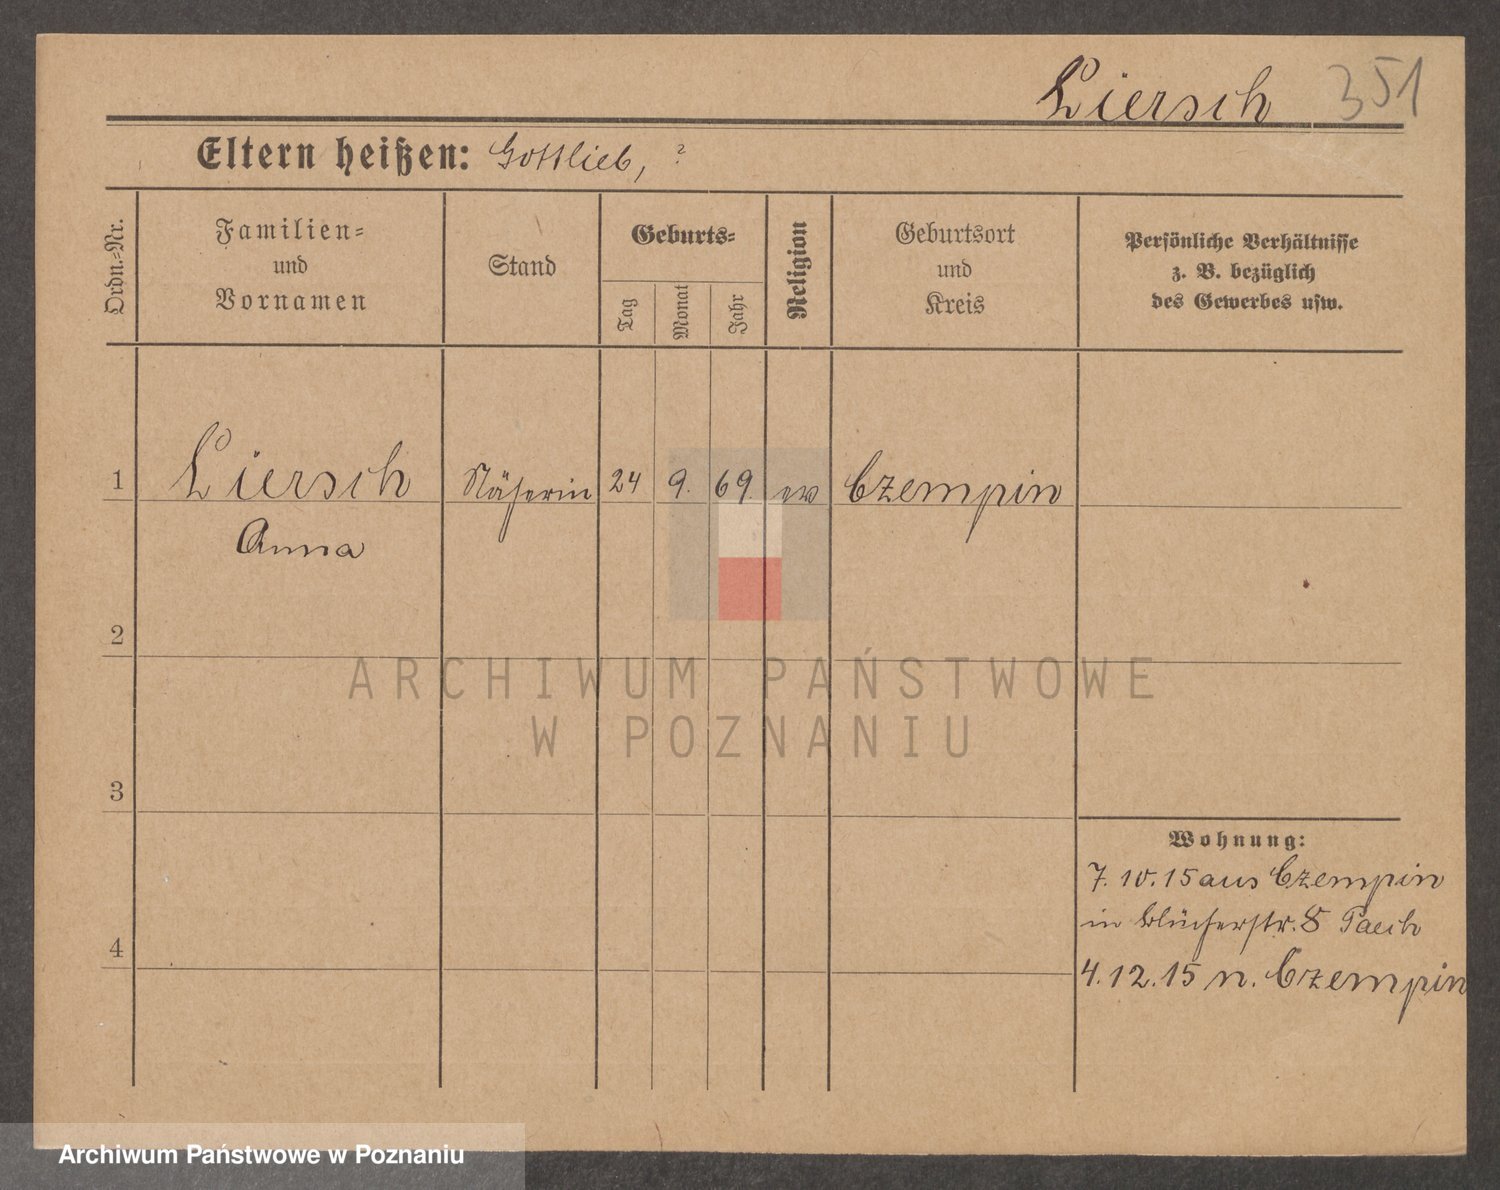 Liersch 351
Eltern heißen: Gottlieb, ?
Ordn.-Nr.
Familien-
und
Vornamen
Stand
Geburts-
Tag
Monat
Jahr
Religion
Geburtsort
und
Kreis
Persönliche Verhältnisse
z. B. bezüglich
des Gewerbes usw.
1 Liersch Näherin 24 9. 69. ev Czempin
Anna
2
ARCHIWUM PAŃSTWOWE
W POZNANIU
3
Wohnung:
7. 10. 15 aus Czempin
in Blücherstr. 8
4
4. 12. 15 n. Czempin
Archiwum Państwowe w Poznaniu